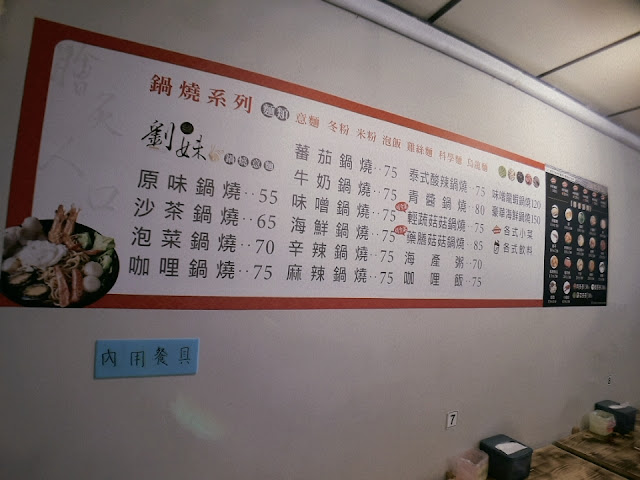 膾炙人口
鍋燒系列 麵類 意麵 冬粉 米粉 泡飯 雞絲麵 科學麵 烏龍麵
劉妹 鍋燒意麵
原味鍋燒‥55
沙茶鍋燒‥65
泡菜鍋燒‥70
咖哩鍋燒‥75
蕃茄鍋燒‥75
牛奶鍋燒‥75
味噌鍋燒‥75
海鮮鍋燒‥75
辛辣鍋燒‥75
麻辣鍋燒‥75
泰式酸辣鍋燒‥75
青醬鍋燒‥80
輕蔬菇菇鍋燒‥75
藥膳菇菇鍋燒‥85
海產粥‥70
咖哩飯‥75
味噌龍蝦鍋燒120
奢華海鮮鍋燒150
各式小菜
各式飲料
內用餐具
7